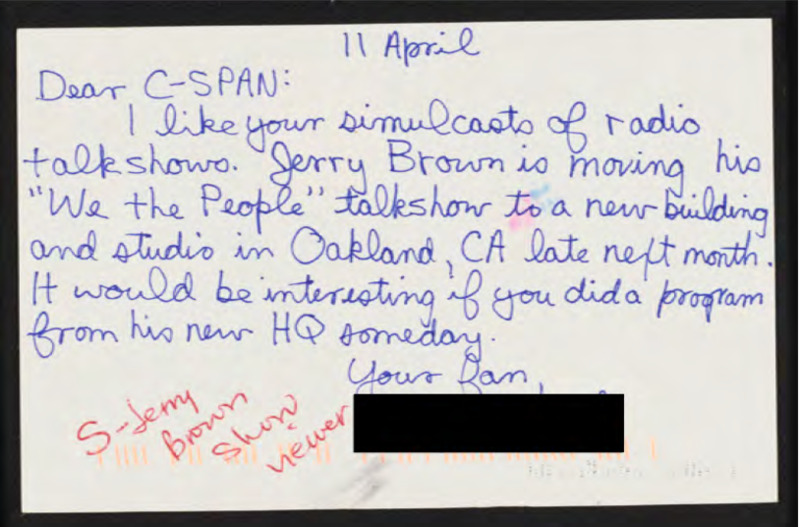 11 April
Dear C-SPAN:
I like your simulcasts of radio
talkshows. Jerry Brown is moving his
"We the People" talkshow to a new building
and studio in Oakland, CA late next month.
It would be interesting if you did a program
from his new HQ someday.
Your fan,
S-Jerry
Brown
Show
viewer